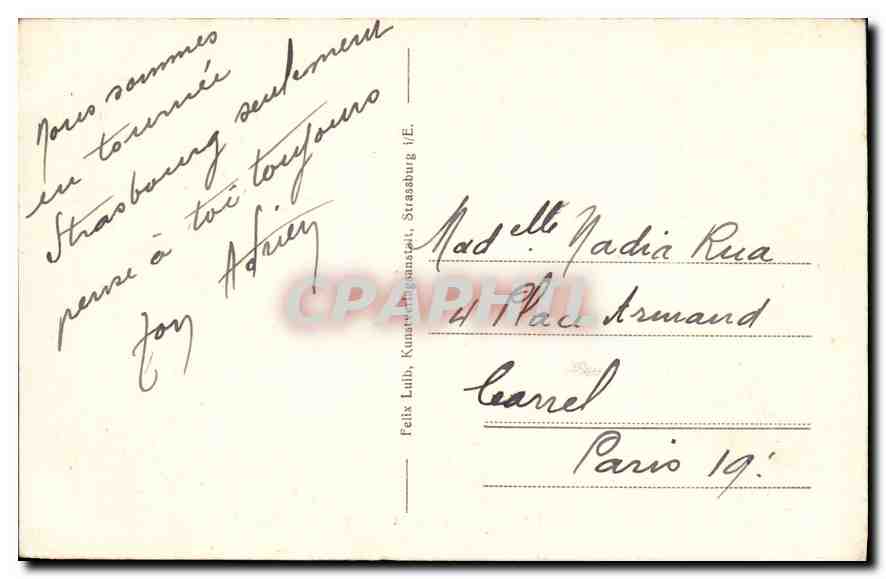 Nous sommes
en tournée
Strasbourg seulement
pense à toi toujours
Ton Adrien
Felix Luib, Kunstverlagsanstalt, Strassburg i/E.
Madelle. Nadia Rua
4 Place Armand
Carrel
Paris 19.
CPAPHIL